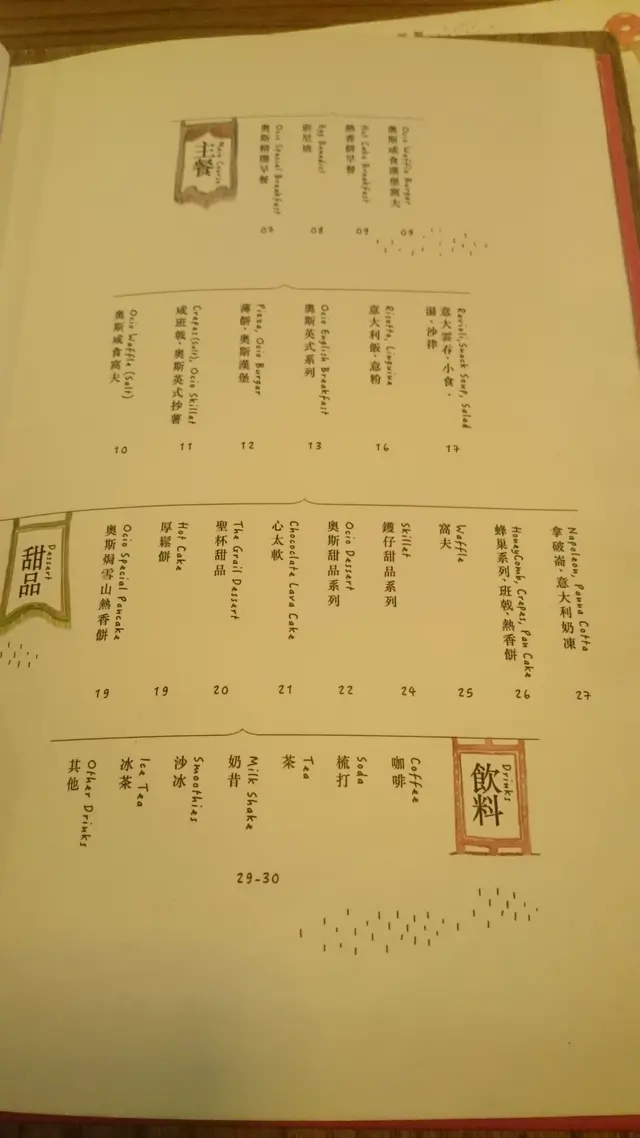 Main Course
主餐
Ocio Special Breakfast
奧斯精選早餐
07
Egg Benedict
班尼迪
08
Hot Cake Breakfast
熱香餅早餐
09
Ocio Waffle Burger
奧斯咸食漢堡窩夫
09
Ocio Waffle (Salt)
奧斯咸食窩夫
10
Crepes(Salt), Ocio Skillet
咸班戟,奧斯英式抄薯
11
Pizza, Ocio Burger
薄餅,奧斯漢堡
12
Ocio English Breakfast
奧斯英式系列
13
Risotto, Linguine
意大利飯,意粉
16
Ravioli,Snack Soup, Salad
意大雲吞,小食,
湯,沙律
17
Dessert
甜品
Ocio Special Pancake
奧斯焗雪山熱香餅
19
Hot Cake
厚鬆餅
19
The Grail Dessert
聖杯甜品
20
Chocolate Lava Cake
心太軟
21
Ocio Dessert
奧斯甜品系列
22
Skillet
鑊仔甜品系列
24
Waffle
窩夫
25
HoneyComb, Crepes, Pan Cake
蜂巢系列,班戟,熱香餅
26
Napoleon, Panna Cotta
拿破崙,意大利奶凍
27
Drinks
飲料
Coffee
咖啡
Soda
梳打
Tea
茶
Milk Shake
奶昔
Smoothies
沙冰
Ice Tea
冰茶
Other Drinks
其他
29-30